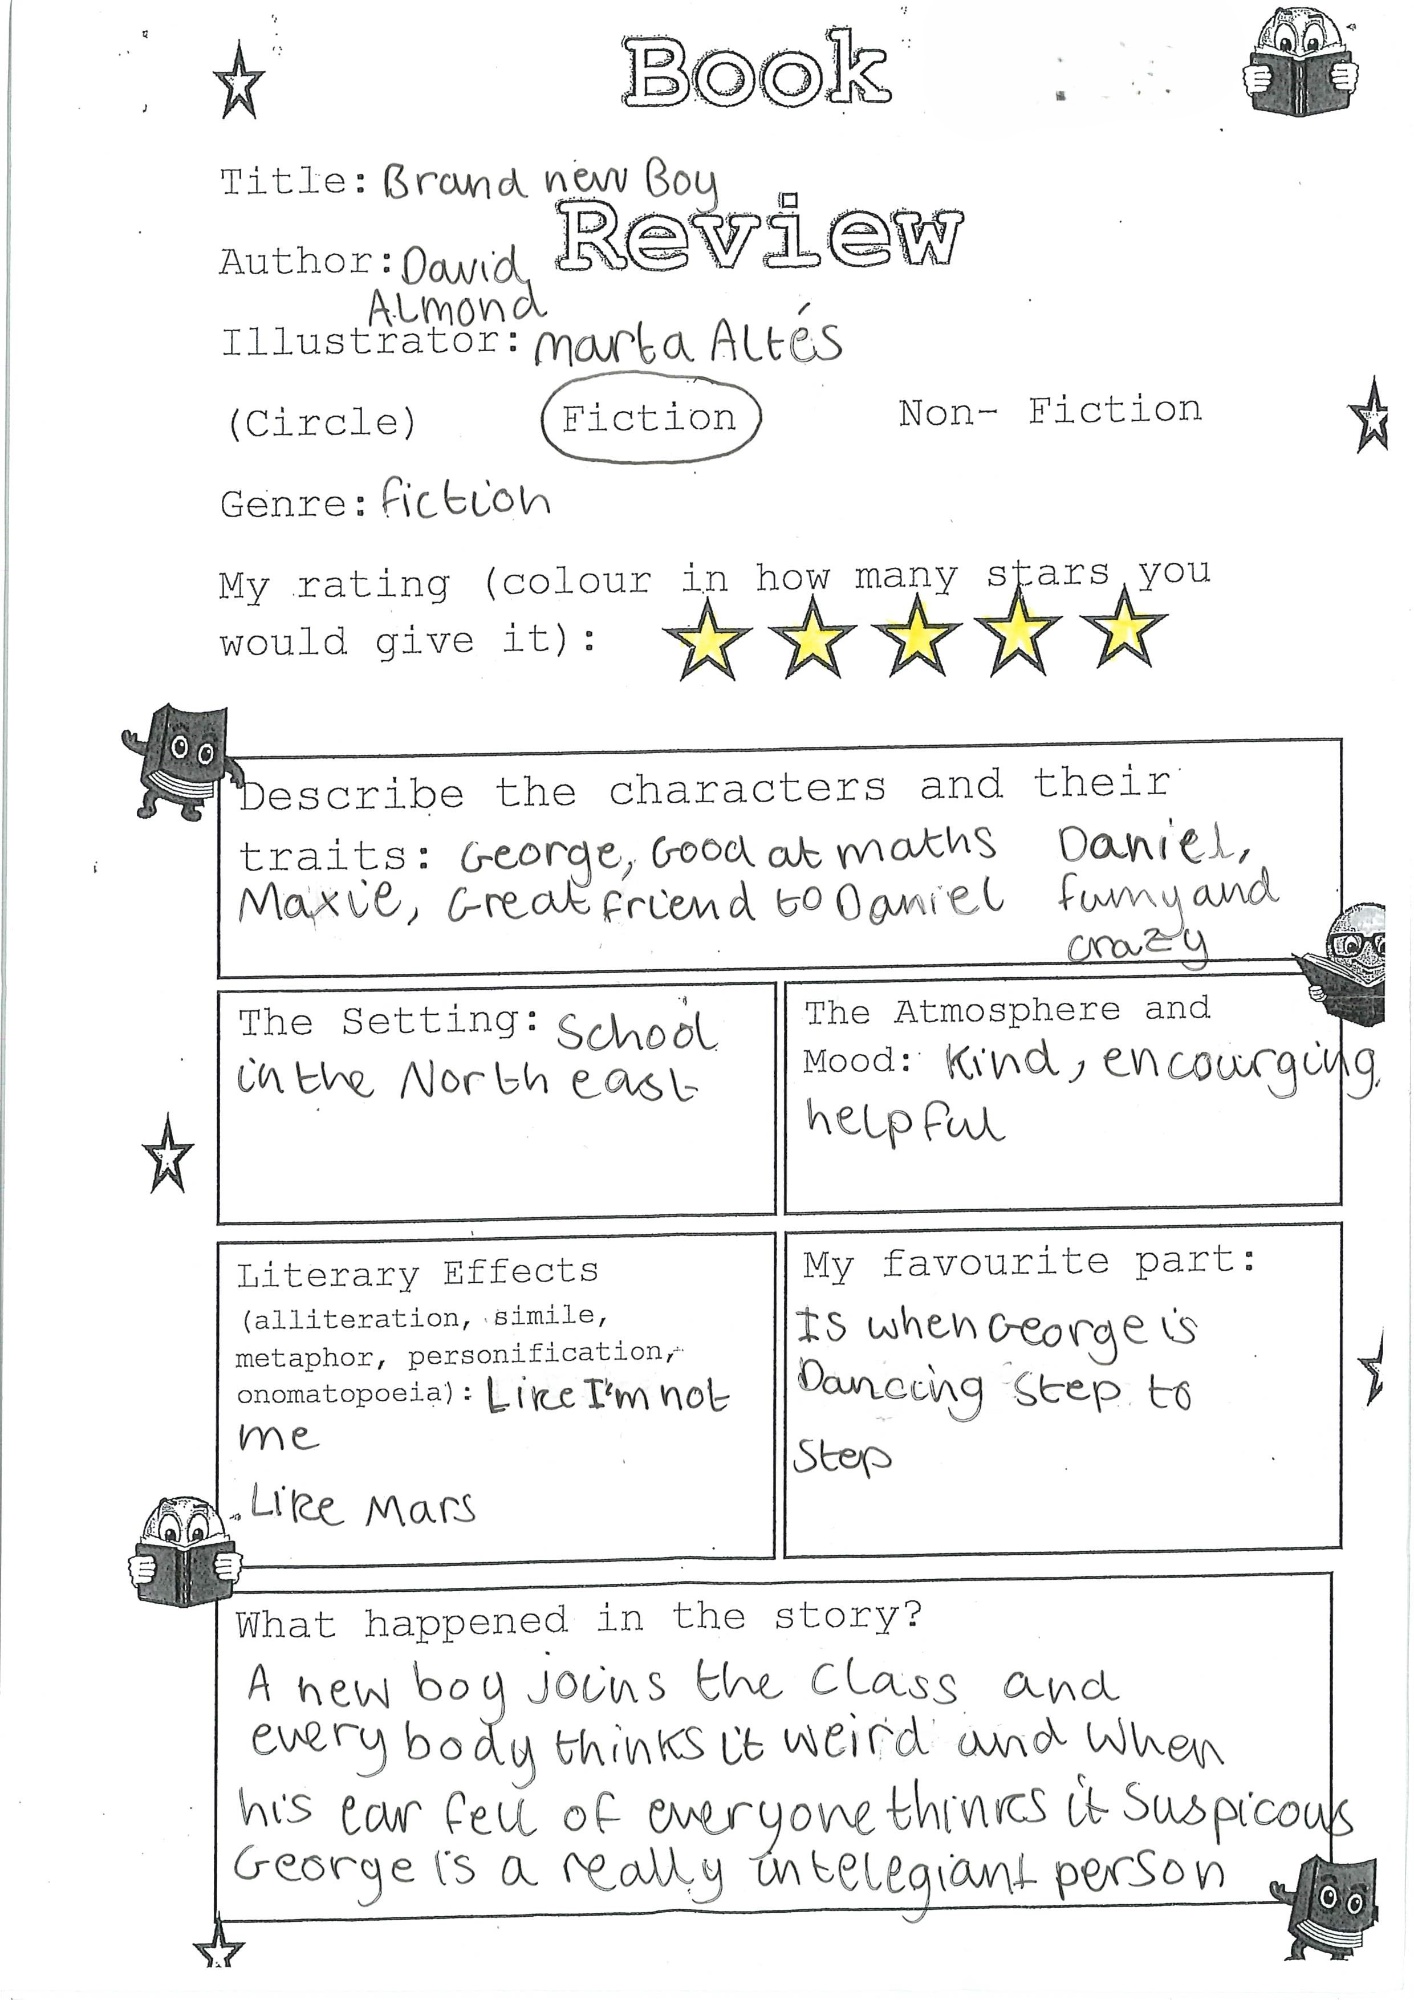 Book
Title: Brand new Boy
Review
Author: David
Almond
Illustrator: Marta Altés
(Circle) Fiction Non- Fiction
Genre: fiction
My rating (colour in how many stars you
would give it):
Describe the characters and their
traits: George, Good at maths Daniel,
Maxie, Great friend to Daniel funny and
crazy
The Setting: School
in the North east
The Atmosphere and
Mood: Kind, encourging,
helpful
Literary Effects
(alliteration, simile,
metaphor, personification,
onomatopoeia): Like I'm not
me
Like Mars
My favourite part:
Is when George is
Dancing Step to
Step
What happened in the story?
A new boy joins the class and
every body thinks it weird and when
his ear fell of everyone thinks it Suspicous
George is a really intelegiant person